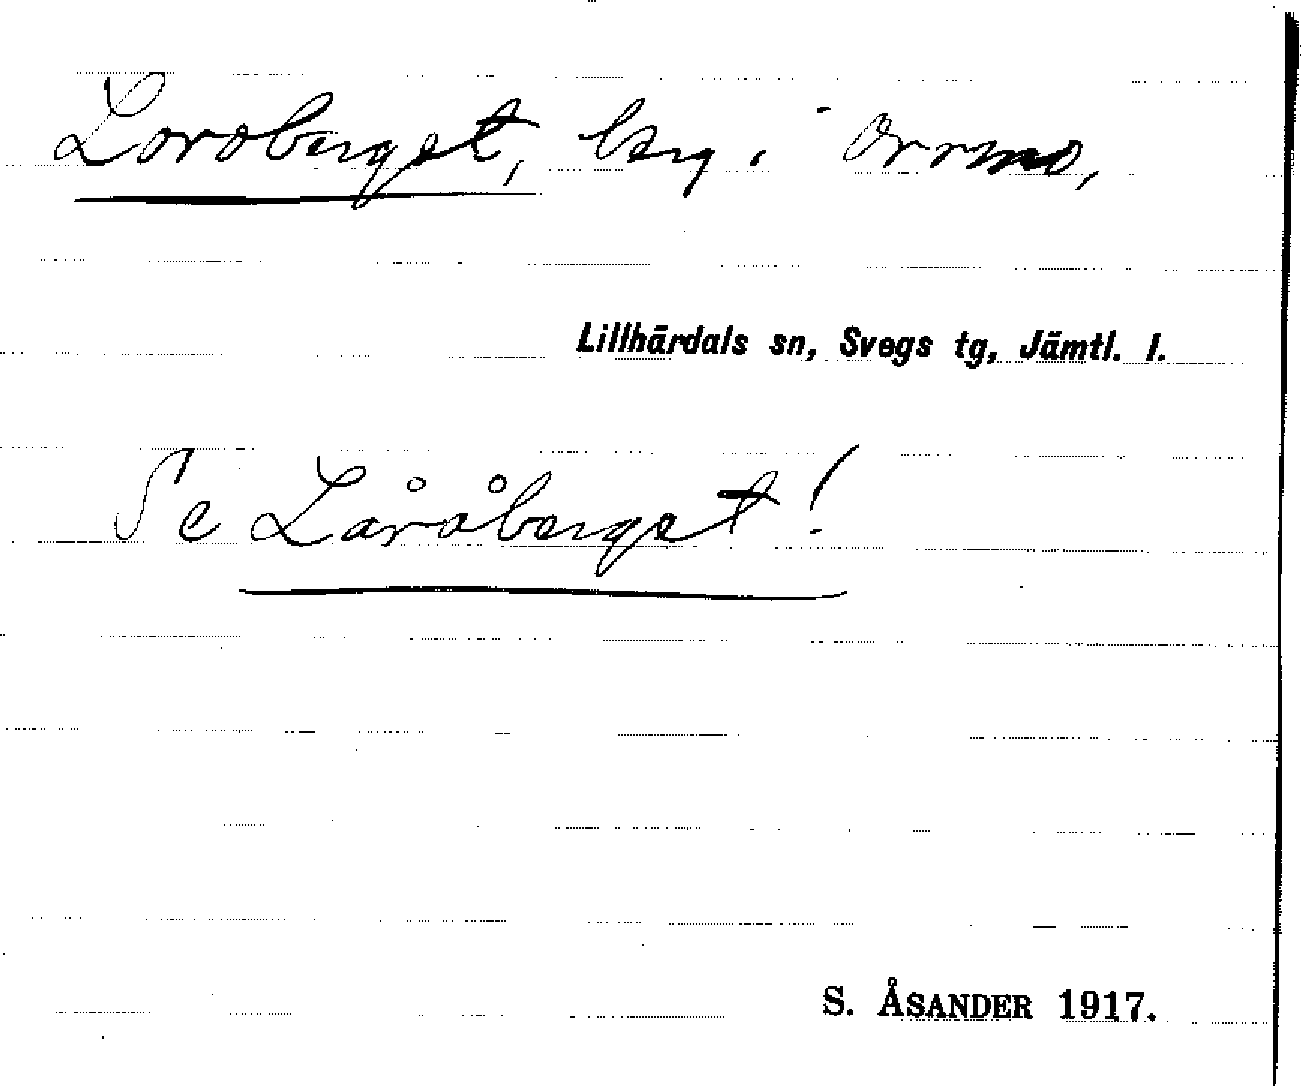 Loroberget, berg i Orrmo,
Lillhärdals sn, Svegs tg, Jämtl. l.
Se Låråberget!
S. ÅSANDER 1917.